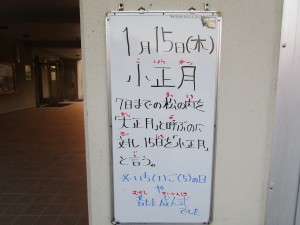 1月15日(木)
こしょうがつ
小正月
7日までの松の内を
「大正月」と呼ぶのに
対し、15日を「小正月」
と言う。
※いち(1)ご(5)の日
や
昔は成人式
でした